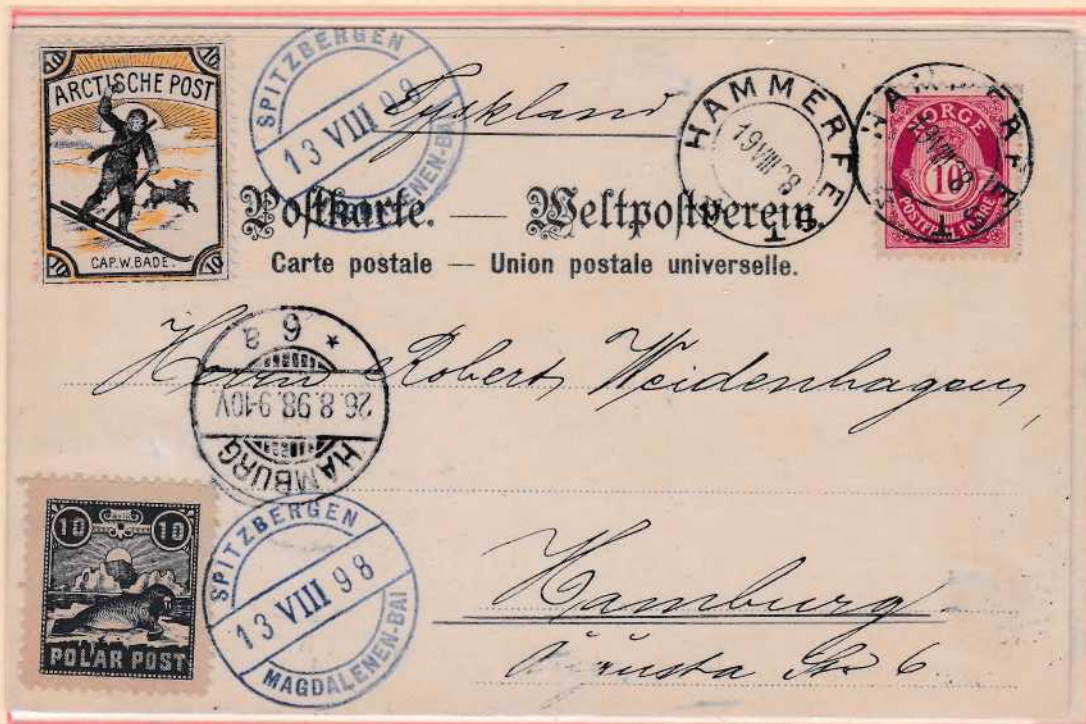 10 10
ARCTISCHE POST
CAP. W. BADE.
10 10
SPITZBERGEN
13 VIII 98
MAGDALENEN-BAI
Tyskland
HAMMERFEST
19 VIII 98
HAMMERFEST
19 VIII 98
NORGE
10
POSTFRIM. 10 ØRE
Postkarte. — Weltpostverein.
Carte postale — Union postale universelle.
Herrn Robert Weidenhagen,
* 6 a
26.8.98.9-10V
HAMBURG
10 10
POLAR POST
SPITZBERGEN
13 VIII 98
MAGDALENEN-BAI
Hamburg
Str 6